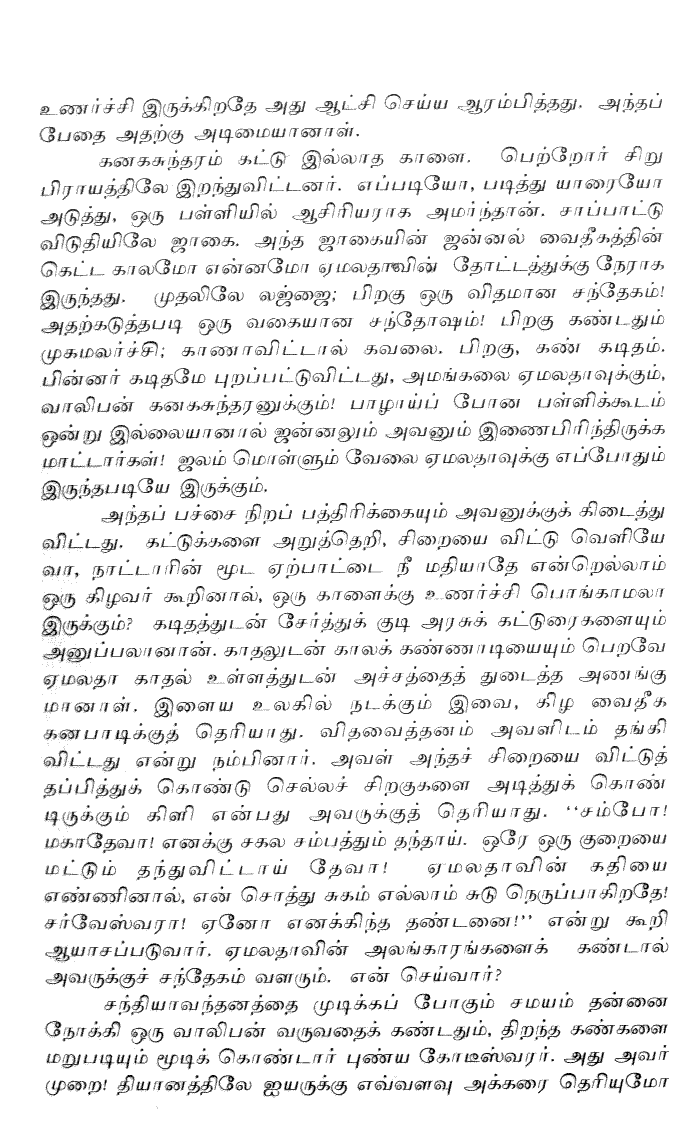 உணர்ச்சி இருக்கிறதே அது ஆட்சி செய்ய ஆரம்பித்தது. அந்தப்
பேதை அதற்கு அடிமையானாள்.
கனகசுந்தரம் கட்டு இல்லாத காளை. பெற்றோர் சிறு
பிராயத்திலே இறந்துவிட்டனர். எப்படியோ, படித்து யாரையோ
அடுத்து, ஒரு பள்ளியில் ஆசிரியராக அமர்ந்தான். சாப்பாட்டு
விடுதியிலே ஜாகை. அந்த ஜாகையின் ஜன்னல் வைதீகத்தின்
கெட்ட காலமோ என்னமோ ஏமலதாவின் தோட்டத்துக்கு நேராக
இருந்தது. முதலிலே லஜ்ஜை; பிறகு ஒரு விதமான சந்தேகம்!
அதற்கடுத்தபடி ஒரு வகையான சந்தோஷம்! பிறகு கண்டதும்
முகமலர்ச்சி; காணாவிட்டால் கவலை. பிறகு, கண் கடிதம்.
பின்னர் கடிதமே புறப்பட்டுவிட்டது, அமங்கலை ஏமலதாவுக்கும்,
வாலிபன் கனகசுந்தரனுக்கும்! பாழாய்ப் போன பள்ளிக்கூடம்
ஒன்று இல்லையானால் ஜன்னலும் அவனும் இணைபிரிந்திருக்க
மாட்டார்கள்! ஜலம் மொள்ளும் வேலை ஏமலதாவுக்கு எப்போதும்
இருந்தபடியே இருக்கும்.
அந்தப் பச்சை நிறப் பத்திரிக்கையும் அவனுக்குக் கிடைத்து
விட்டது. கட்டுக்களை அறுத்தெறி, சிறையை விட்டு வெளியே
வா, நாட்டாரின் மூட ஏற்பாட்டை நீ மதியாதே என்றெல்லாம்
ஒரு கிழவர் கூறினால், ஒரு காளைக்கு உணர்ச்சி பொங்காமலா
இருக்கும்? கடிதத்துடன் சேர்த்துக் குடி அரசுக் கட்டுரைகளையும்
அனுப்பலானான். காதலுடன் காலக் கண்ணாடியையும் பெறவே
ஏமலதா காதல் உள்ளத்துடன் அச்சத்தைத் துடைத்த அணங்கு
மானாள். இளைய உலகில் நடக்கும் இவை, கிழ வைதீக
கனபாடிக்குத் தெரியாது. விதவைத்தனம் அவளிடம் தங்கி
விட்டது என்று நம்பினார். அவள் அந்தச் சிறையை விட்டுத்
தப்பித்துக் கொண்டு செல்லச் சிறகுகளை அடித்துக் கொண்
டிருக்கும் கிளி என்பது அவருக்குத் தெரியாது. “சம்போ!
மகாதேவா! எனக்கு சகல சம்பத்தும் தந்தாய். ஒரே ஒரு குறையை
மட்டும் தந்துவிட்டாய் தேவா! ஏமலதாவின் கதியை
எண்ணினால், என் சொத்து சுகம் எல்லாம் சுடு நெருப்பாகிறதே!
சர்வேஸ்வரா! ஏனோ எனக்கிந்த தண்டனை!” என்று கூறி
ஆயாசப்படுவார். ஏமலதாவின் அலங்காரங்களைக் கண்டால்
அவருக்குச் சந்தேகம் வளரும். என் செய்வார்?
சந்தியாவந்தனத்தை முடிக்கப் போகும் சமயம் தன்னை
நோக்கி ஒரு வாலிபன் வருவதைக் கண்டதும், திறந்த கண்களை
மறுபடியும் மூடிக் கொண்டார் புண்ய கோடீஸ்வரர். அது அவர்
முறை! தியானத்திலே ஐயருக்கு எவ்வளவு அக்கரை தெரியுமோ